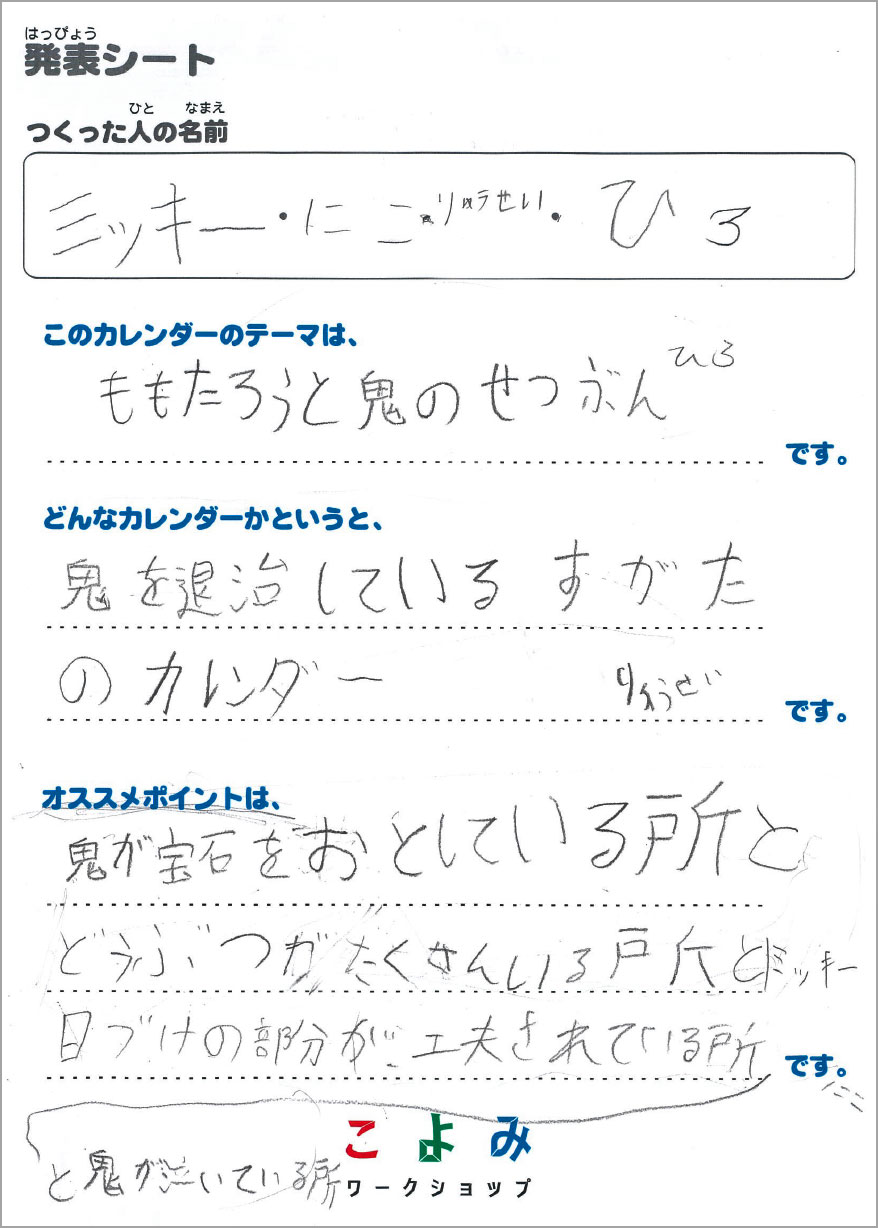 はっぴょう
発表シート
ひと なまえ
つくった人の名前
ミッキー・にこ・りゅうせい・ひろ
このカレンダーのテーマは、
ももたろうと鬼のせつぶん ひろ
です。
どんなカレンダーかというと、
鬼を退治しているすがた
のカレンダー りゅうせい
です。
オススメポイントは、
鬼が宝石をおとしている所と
どうぶつがたくさんいる所と ミッキー
日づけの部分が工夫されている所
です。
にこ
と鬼が泣いている所
こよみ
ワークショップ